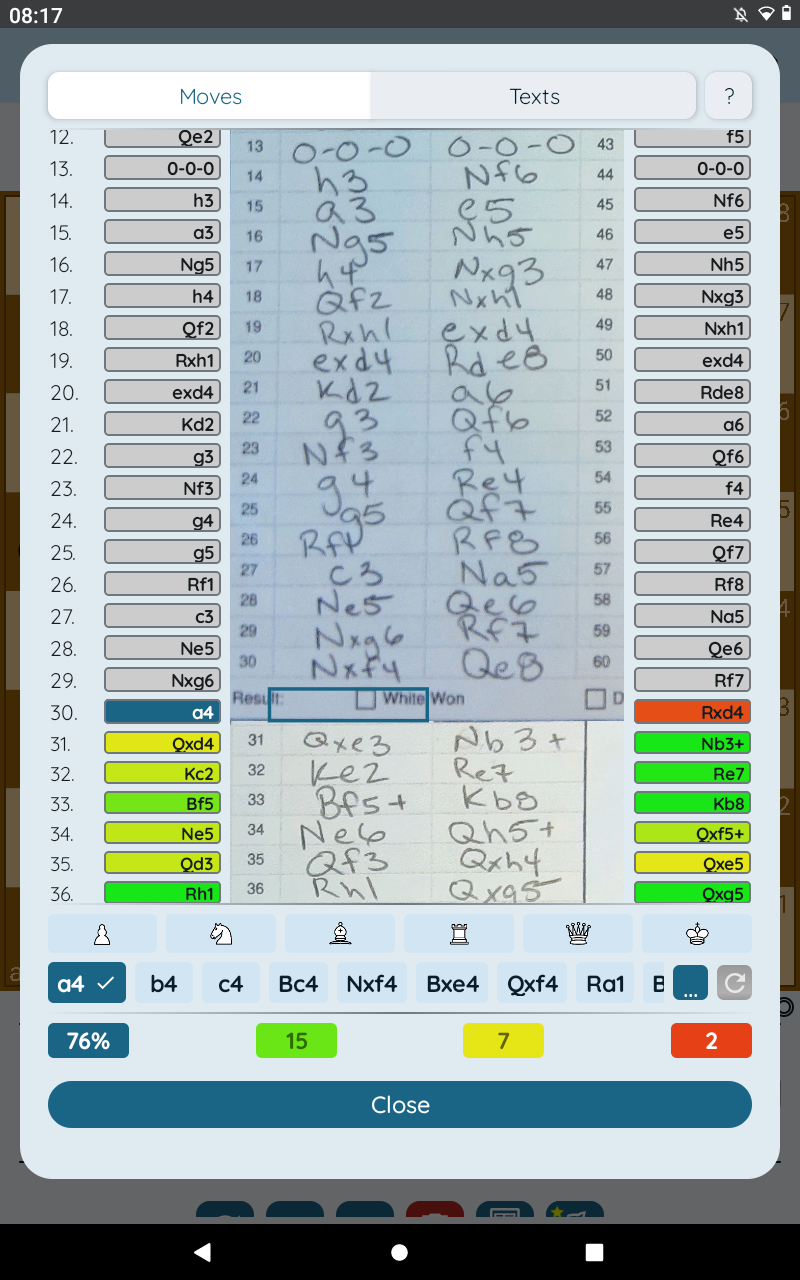 08:17
Moves Texts ?
12. Qe2 f5
13. 0-0-0 13 O-O-O O-O-O 43 0-0-0
14. h3 14 h3 Nf6 44 Nf6
15. a3 15 a3 e5 45 e5
16. Ng5 16 Ng5 Nh5 46 Nh5
17. h4 17 h4 Nxg3 47 Nxg3
18. Qf2 18 Qf2 Nxh1 48 Nxh1
19. Rxh1 19 Rxh1 exd4 49 exd4
20. exd4 20 exd4 Rde8 50 Rde8
21. Kd2 21 Kd2 a6 51 a6
22. g3 22 g3 Qf6 52 Qf6
23. Nf3 23 Nf3 f4 53 f4
24. g4 24 g4 Re4 54 Re4
25. g5 25 g5 Qf7 55 Qf7
26. Rf1 26 Rf1 Rf8 56 Rf8
27. c3 27 c3 Na5 57 Na5
28. Ne5 28 Ne5 Qe6 58 Qe6
29. Nxg6 29 Nxg6 Rf7 59 Rf7
30 Nxf4 Qe8 60
30. a4 Result: White Won D Rxd4
31. Qxd4 31 Qxe3 Nb3+ Nb3+
32. Kc2 32 Ke2 Re7 Re7
33. Bf5 33 Bf5+ Kb8 Kb8
34. Ne5 34 Ne6 Qh5+ Qxf5+
35. Qd3 35 Qf3 Qxh4 Qxe5
36. Rh1 36 Rh1 Qxg5 Qxg5
a4 b4 c4 Bc4 Nxf4 Bxe4 Qxf4 Ra1 B ...
76% 15 7 2
Close